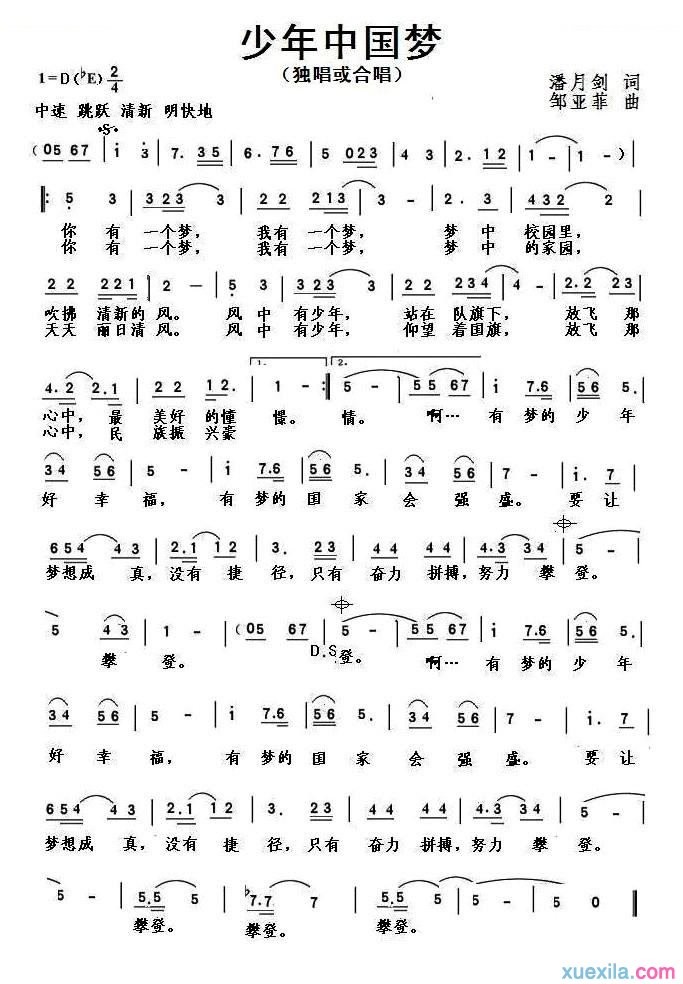 少年中国梦
（独唱或合唱）
1=D（♭E）2/4
潘月剑 词
邹亚菲 曲
中速 跳跃 清新 明快地
（05 67 | i 3 | 7. 35 | 6. 76 | 5 023 | 4 3 | 2. 12 | 1 - | 1 - ）|
‖: 5 3 | 323 3 | 2 2 | 213 3 - | 2. 3 | 432 2 |
你 有 一个梦， 我有 一个 梦， 梦 中 校园里，
你 有 一个梦， 我有 一个 梦， 梦 中 的家园，
22 221 | 2 - | 5 3 | 323 3 | 22 234 | 2 2 2 |
吹拂 清新的 风。 风 中 有少年， 站在 队旗下， 放飞 那
天天 丽日清 风。 风 中 有少年， 仰望 着国旗， 放飞 那
1. 2.
4.2 2.1 | 22 220. | 1 - :‖ 5 - | 55 67 | i 7.6 | 56 5. |
心中， 最 美好 的憧 憬。 情。 啊… 有 梦的 少 年
心中， 民 族振 兴豪
34 56 | 5 - | i 7.6 | 56 5. | 34 56 | 5 - | i. 7 |
好 幸 福， 有 梦的 国 家 会 强 盛。 要让
654 43 | 2.1 12 | 3. 23 | 44 44 | 4.3 22 | 5 - |
梦想成 真，没有 捷 径，只有 奋力 拼搏，努力 攀 登。
5 43 | 1 - | （05 67 | 5 - | 55 67 | i 7.6 | 56 5. |
D.S
攀 登。 登。 啊… 有 梦的 少 年
34 56 | 5 - | i 7.6 | 56 5. | 34 56 | 5 - | i. 7 |
好 幸 福， 有 梦的 国 家 会 强 盛。 要让
654 43 | 2.1 12 | 3. 23 | 44 44 | 4.3 22 | 5 - |
梦想成 真，没有 捷 径，只有 奋力 拼搏，努力 攀 登。
5 - | 5.5 5 | ♭7.7 7 | 5.5 5 - | 5 - | 5 0 ‖
攀登。 攀登。 攀登。
xuexila.com